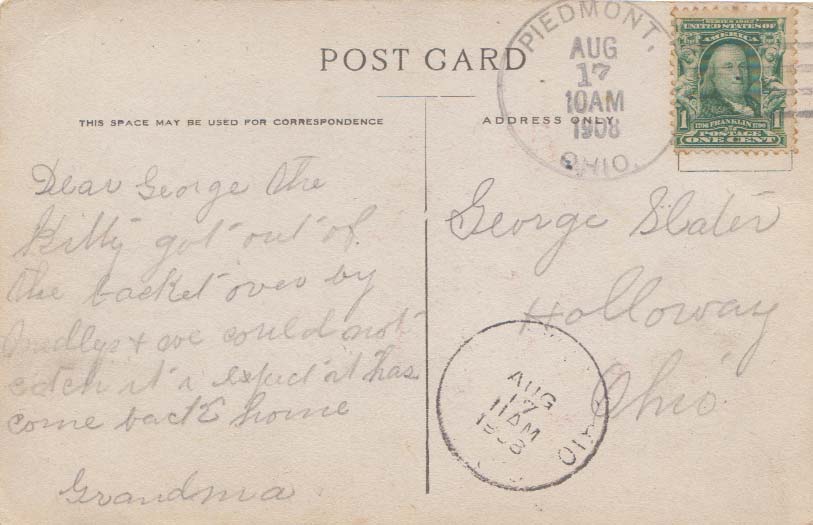 POST CARD
THIS SPACE MAY BE USED FOR CORRESPONDENCE
ADDRESS ONLY
PIEDMONT,
AUG
17
10AM
1908
OHIO.
SERIES 1902
UNITED STATES OF
AMERICA
1706 FRANKLIN 1790
1 1
POSTAGE
ONE CENT
Dear George the
Kitty got out of
the backet over by
& we could not
catch it I expect it has
come back home
Grandma
George Slater
Holloway
Ohio
AUG
17
11AM
1908
HIO